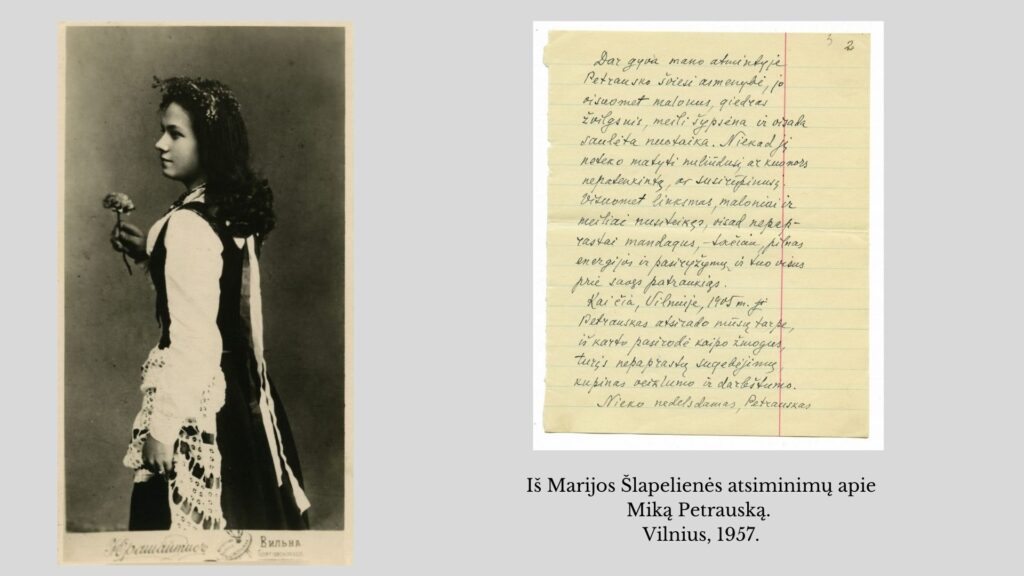 Вильна
2
Dar gyva mano atmintyje
Petrausko šviesi asmenybė, jo
visuomet malonus, giedras
žvilgsnis, meili šypsena ir visada
saulėta nuotaika. Niekad jį
neteko matyti nuliūdusį ar kuonors
nepatenkintą, ar susirūpinusį.
Visuomet linksmas, maloniai ir
meiliai nusiteikęs, visad nepap-
rastai mandagus, – tačiau, pilnas
energijos ir pasiryžymų ir tuo visus
prie savęs patraukiąs.
Kai čia, Vilniuje, 1905 m.
Petrauskas atsirado mūsų tarpe,
iš karto pasirodė kaipo žmogus,
turįs nepaprastų sugebėjimų
kupinas veiklumo ir darbštumo.
Nieko nedelsdamas, Petrauskas
Iš Marijos Šlapelienės atsiminimų apie
Miką Petrauską.
Vilnius, 1957.